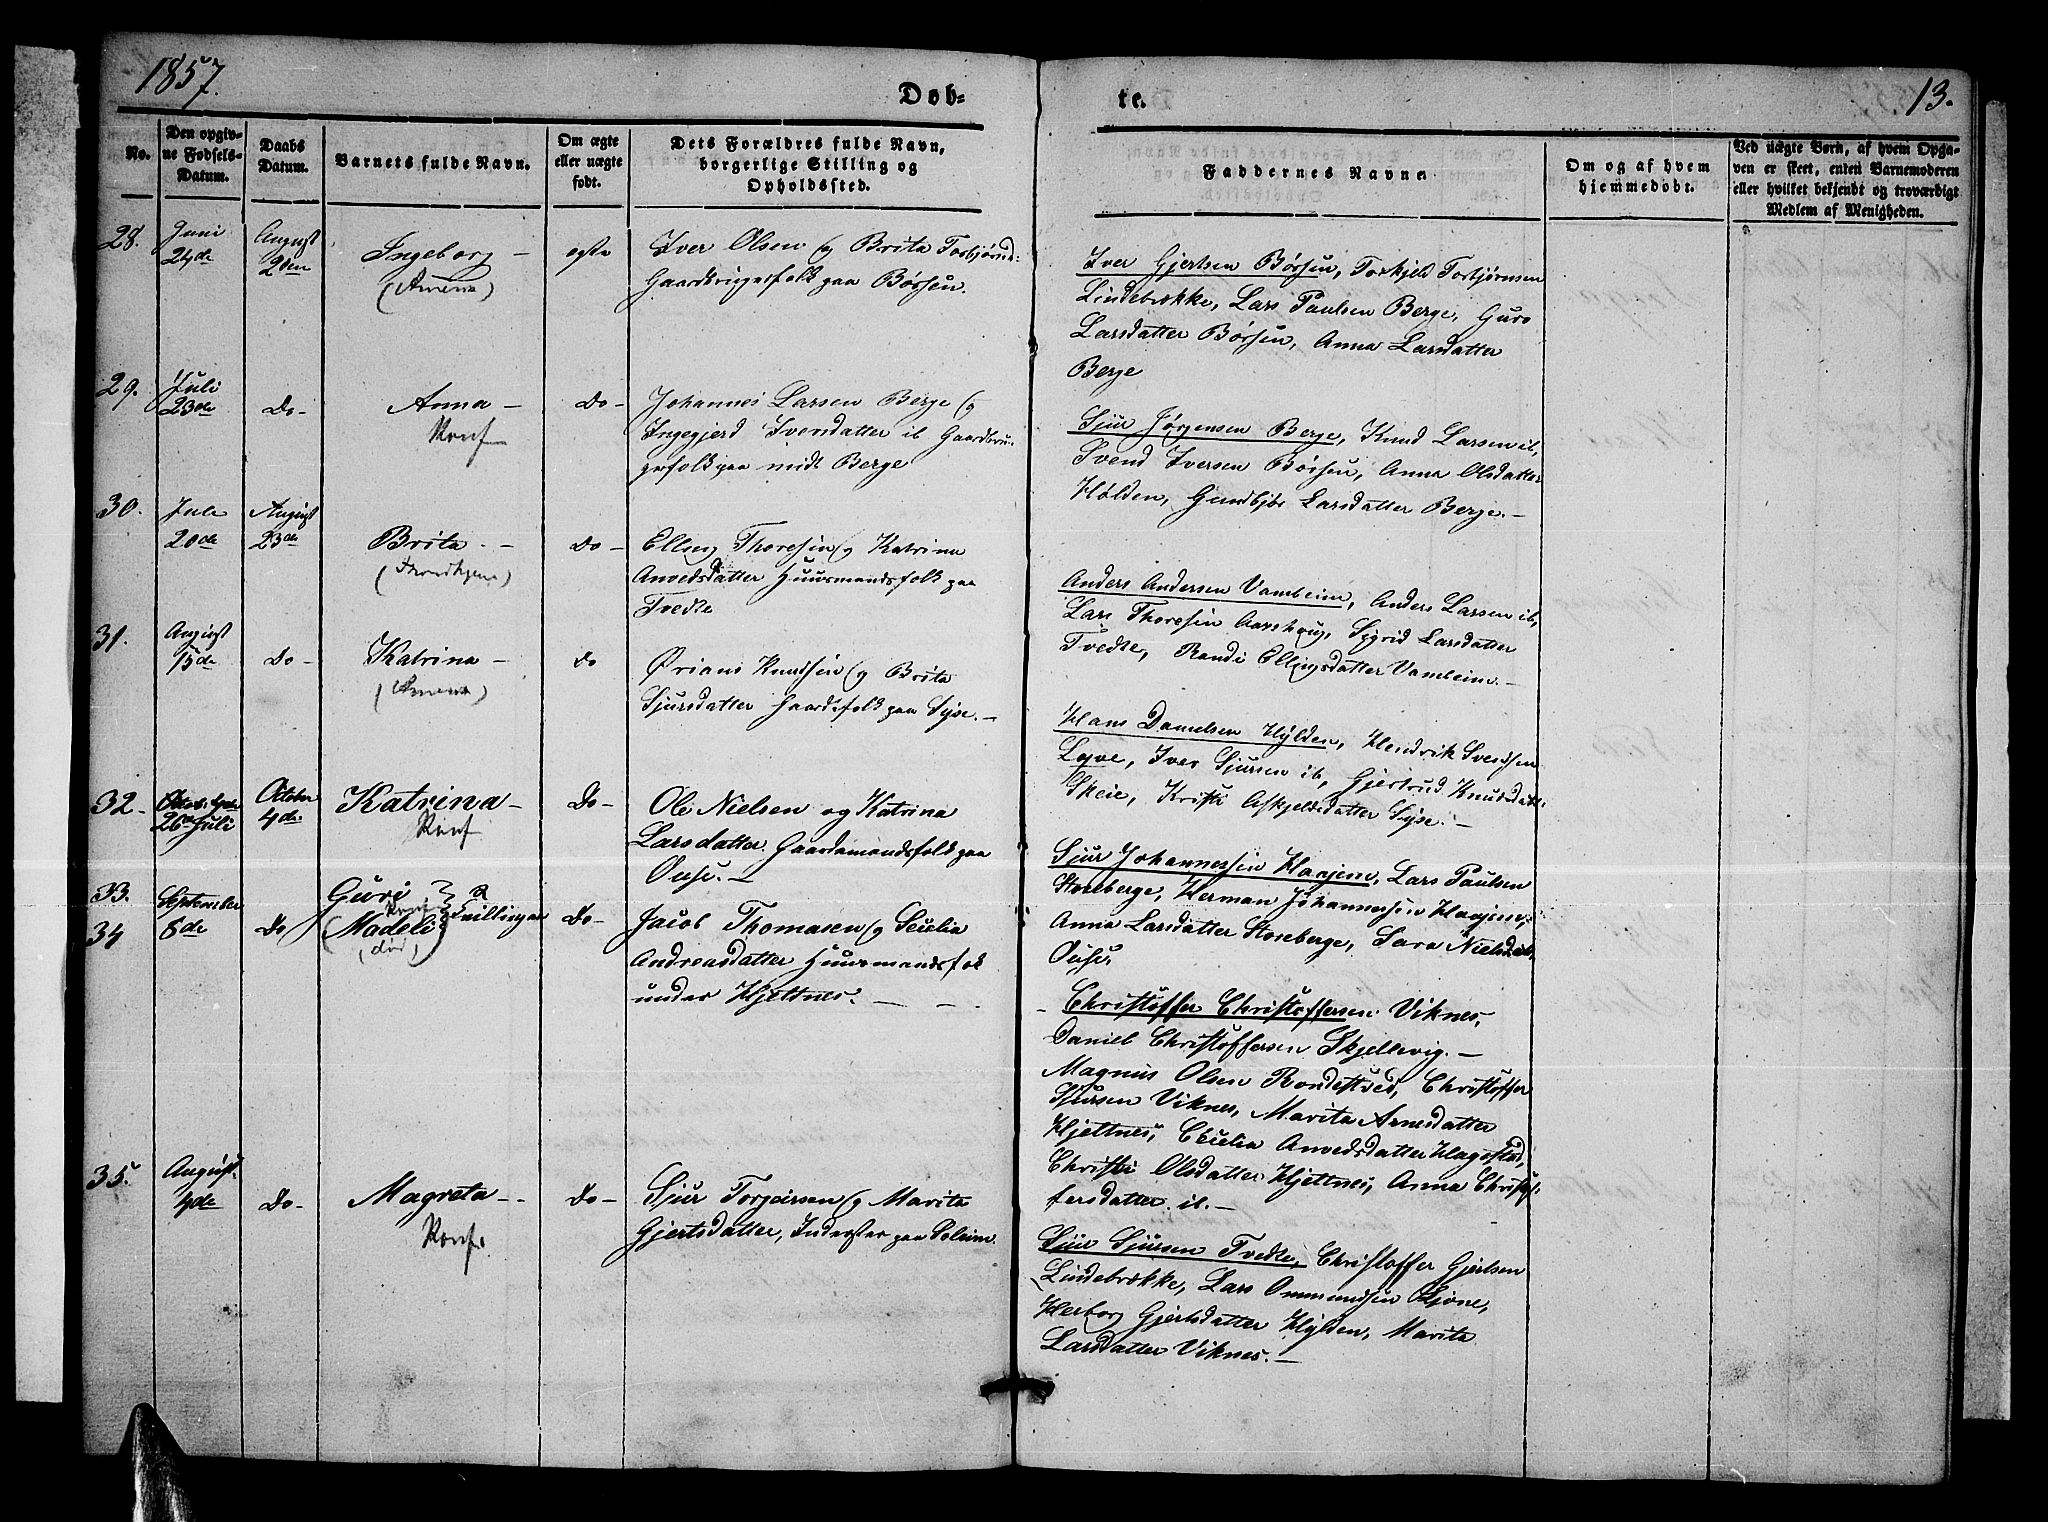 1857.
Døb-
te.
13.
No.
Den opgiv-
ne Fødsels-
Datum.
Daabs
Datum.
Barnets fulde Navn.
Om ægte
eller uægte
født.
Dets Forældres fulde Navn,
borgerlige Stilling og
Opholdssted.
Faddernes Navne.
Om og af hvem
hjemmedøbt.
Ved uægte Børn, af hvem Opga-
ven er skeet, enten Barnemoderen
eller hvilket bekjendt og troværdigt
Medlem af Menigheden.
28.
Juni
24de
August
2den
Ingeborg -
(Amena)
egte
Iver Olsen og Brita Torbjørnsd:
Gaardbrugerfolk paa Børsen.
Iver Gjertsen Børsen, Torkjeld Torbjørnsen
Lindebrække, Lars Paulsen Berge, Guro
Larsdatter Børsen, Anna Larsdatter
Berge
29.
Juli
23de
Do-
Anna -
Konf
Do-
Johannes Larsen Berge og
Ingegjerd Iversdatter ib Gaardbru-
gerfolk paa midt Berge
Sjur Jørgensen Berge, Knud Larsen ib,
Svend Iversen Børsen, Anna Olsdatter
Hølden, Gundbjør Larsdatter Berge.-
30.
Juli
20de
August
23de
Brita. -
Do-
Elling Thoresen og Katrina
Anvedsdatter Huusmandsfolk paa
Tvedte
Anders Andersen Vambeim, Anders Larsen ib,
Lars Thoresen Aarhoug, Sygrid Larsdatter
Tvedte, Randi Ellingsdatter Vambeim.-
31.
August
15de
Do-
Katrina -
(Amena)
Do
Ørians Knudsen og Brita
Sjursdatter Gaardsfolk paa Syse.-
Hans Danielsen Hylden, Hendrik Svendsen
Lyve, Iver Sjursen ib, Gjertrud Knudsdatt:
Skeie, Kristi Askjeldsdatter Syse.-
32.
26 Juli
October
4de
Katrina -
Konf
Do-
Ole Nielsen og Katrina
Larsdatter Gaardmandsfolk paa
Ouse.-
Sjur Johannessen Haajem, Lars Paulsen
Storeberge, Herman Johannessen Haajem,
Anna Larsdatter Storeberge, Sara Nielsdatt.
Ouse.
33.
34
September
8de
Do
Guri
Konf
(Madeli)
(død)
Tvillinger
Do-
Jacob Thomasen og Secelia
Andreasdatter Huusmandsfolk
under Hjeltnes. - -
- Christoffer Christoffersen Viknes,
Daniel Christoffersen Skjellevig.-
Magnus Olsen Rondestved, Christoffer
Sjursen Viknes, Marita Arnesdatter
Hjeltnes, Cecelia Anvedsdatter Hagestad,
Christi Olsdatter Hjeltnes, Anna Christof-
fersdatter ib.-
35.
August.
4de
Do-
Magreta -
Konf.
Do-
Sjur Torgeirsen og Marita
Gjertsdatter, Inderster paa Soleim
Sjur Sjursen Tvedte, Christoffer Gjertsen
Lindebrække, Lars Ommundsen Ljone,
Herborg Gjertsdatter Hylden, Marita
Larsdatter Viknes.-